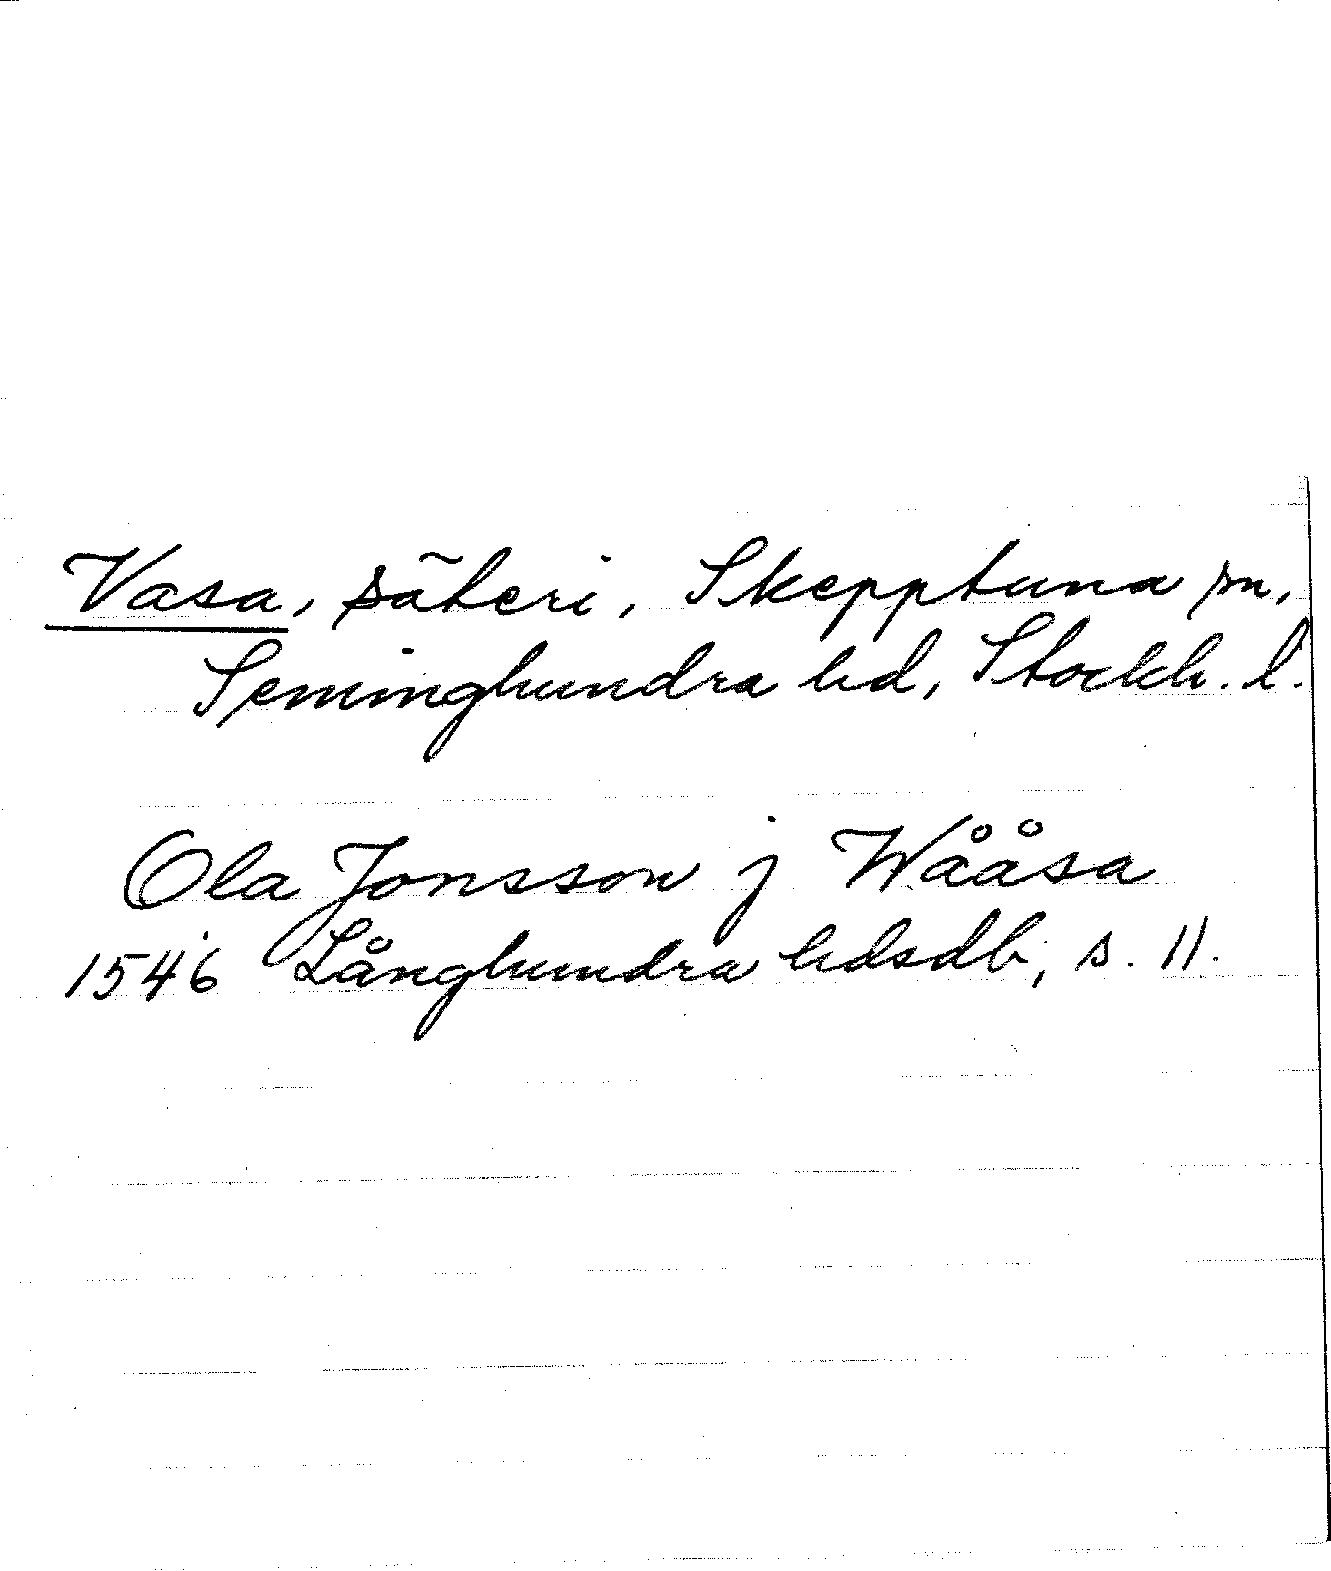 Vasa, säteri, Skepptuna sn,
Seminghundra hd, Stockh. l.
Ola Jonsson j Wååsa
1546 Långhundra hdsdb, s. 11.